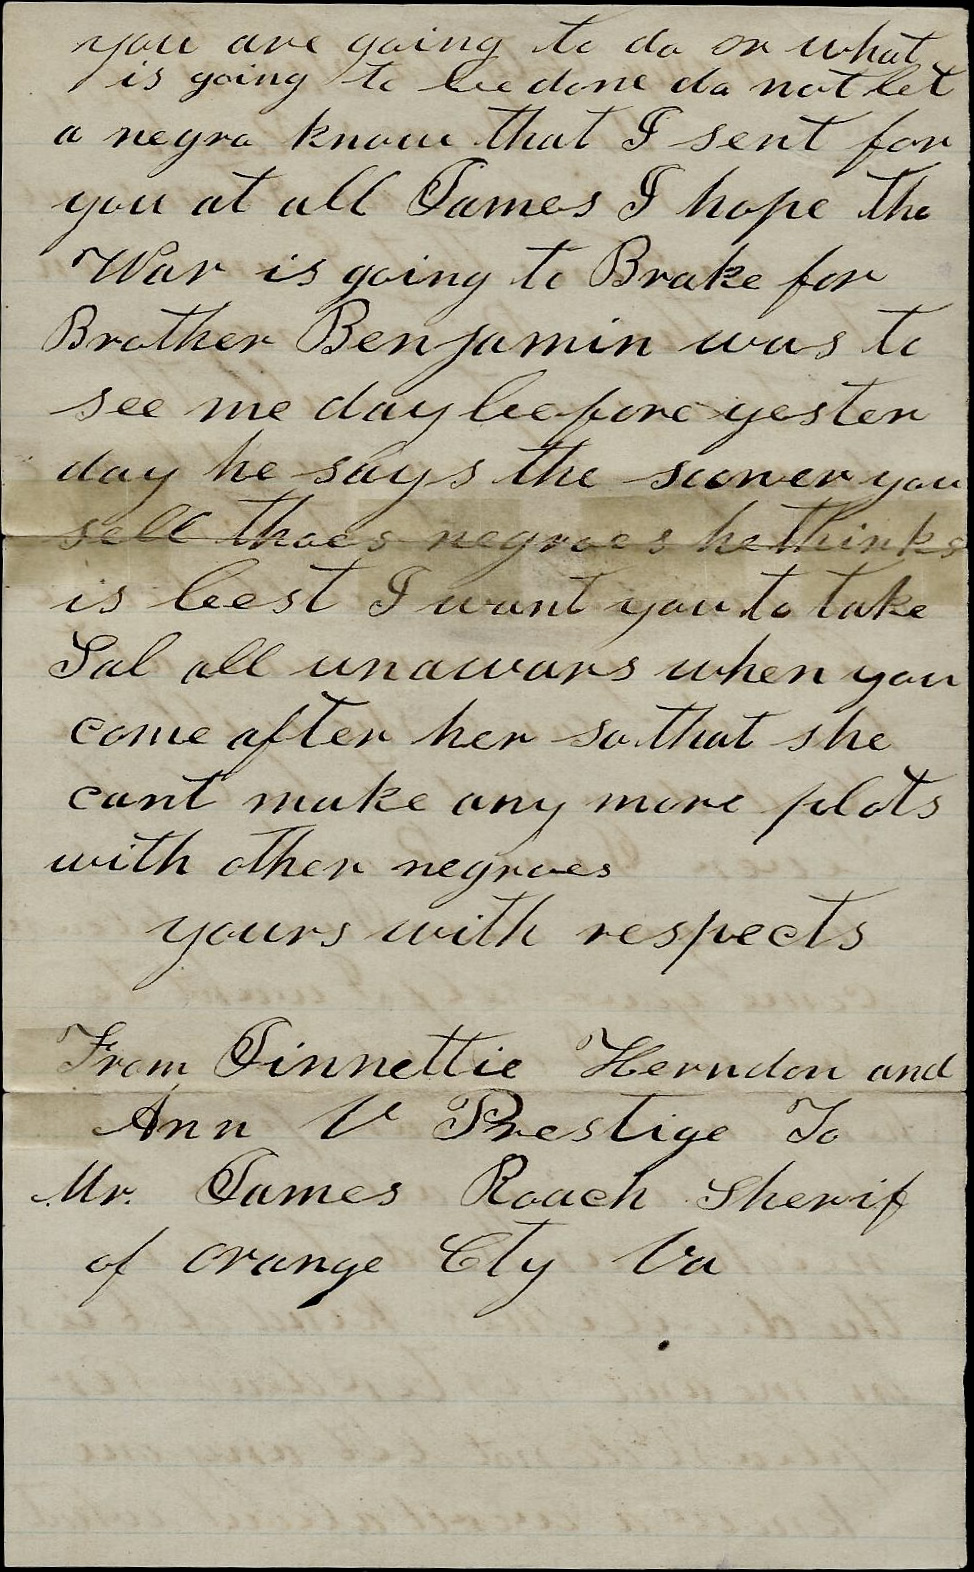 you are going to do or what
is going to be done do not let
a negro know that I sent for
you at all James I hope the
War is going to Brake for
Brother Benjamin was to
see me day before yester
day he says the sooner you
sell thoes negroes he thinks
is best I want you to take
Sal all unawars when you
come after her so that she
cant make any more plots
with other negroes
yours with respects
From Jinnettie Herndon and
Ann V Prestige To
Mr. James Roach Sherif
of orange Cty Va